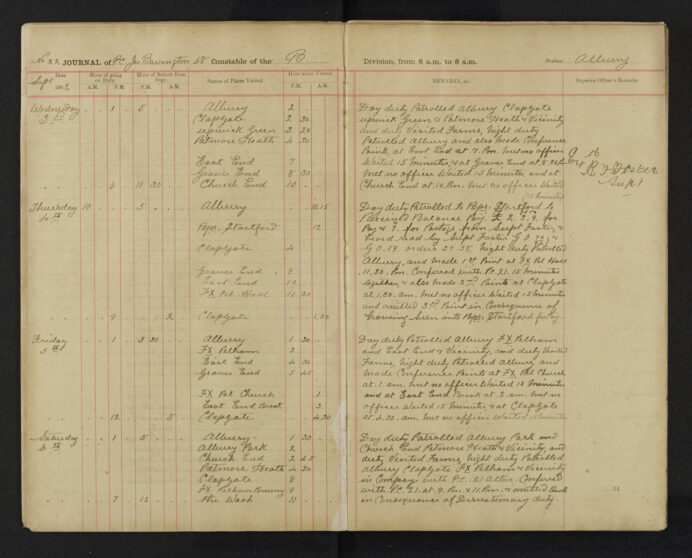 JOURNAL of P.C. Jas Barrington 58 Constable of the B
Date
Hour of going on Duty.
Hour of Return from Duty.
Names of Places Visited.
Hour when Visited.
Sept 190
A.M. P.M. P.M. A.M. P.M. A.M.
Wednesday 1 5 Albury 2
3rd Clapgate 2 30
Upwick Green 3 20
Patmore Heath 4 30
East End 7
Graves End 8 30
6 11 30 Church End 10
Thursday 10 5 Albury 10.15
4th Bps. Stortford 12
Clapgate 4
Graves End 9
East End 10
Fx Pel Hall 11 30
9 2 Clapgate 1.30
Friday 1 5 30 Albury 1 30
5th Fx Pelham 3
East End 4 30
Graves End 5 45
Fx Pel Church 1
East End Brook 3
12 5 Clapgate 4.30
Saturday 1 5 Albury 1 30
6th Albury Park 2
Church End 2 45
Patmore Heath 4 30
Clapgate 8
Fx Pelham Bursary 9
7 12 The Wash 11
Division, from 8 a.m. to 8 a.m. Station Albury
REMARKS, &c.
Superior Officer's Remarks.
Day duty Patrolled Albury Clapgate
Upwick Green & Patmore Heath & Vicinity
and duly Visited Farms, Night duty
Patrolled Albury and also made Conference
Points, at East End at 7. Pm. met no officer
Waited 15 Minutes, & at Graves End at 8.30 Pm
met no officer Waited 15 Minutes, and at
Church End at 10. Pm. met no officer Waited
(15 minutes)
Supt
Day duty Patrolled to Bps. Stortford to
Received Balance Pay. £ 2. 3. 9. for
Pay & 7. for Postage from Supt Foster, &
heard read by Supt Foster G.O.
G.O. 19. orders 37.38. Night duty Patrolled
Albury, and Made 1st Point at Fx Pel Hall
11.30. Pm. Conferred with P.C. 21. 15 Minutes
together & also Made 2nd Points at Clapgate
at, 1.30. am. met no officer Waited 15 Minutes
and omitted 3rd Point in Consequence of
having been into Bps. Stortford for pay.
Day duty Patrolled Albury Fx Pelham
and East End & Vicinity, and duly Visited
Farms, Night duty Patrolled Albury, and
Made Conference Points at Fx Pel Church
at. 1. am. met no officer Waited 15 minutes
and at East End Brook at. 3. am. met no
officer Waited 15 Minutes, & at Clapgate
at. 4.30. am. met no officer Waited 15 minutes
Day duty Patrolled Albury Park and
Church End Patmore Heath & Vicinity, and
duly Visited Farms, Night duty Patrolled
Albury Clapgate Fx Pelham & Vicinity
in Company with P.C. 21 Alton. Conferred
with. P.C. 21. at. 9. Pm. & 11. Pm. & omitted Points
in Consequence of Discretionary duty.